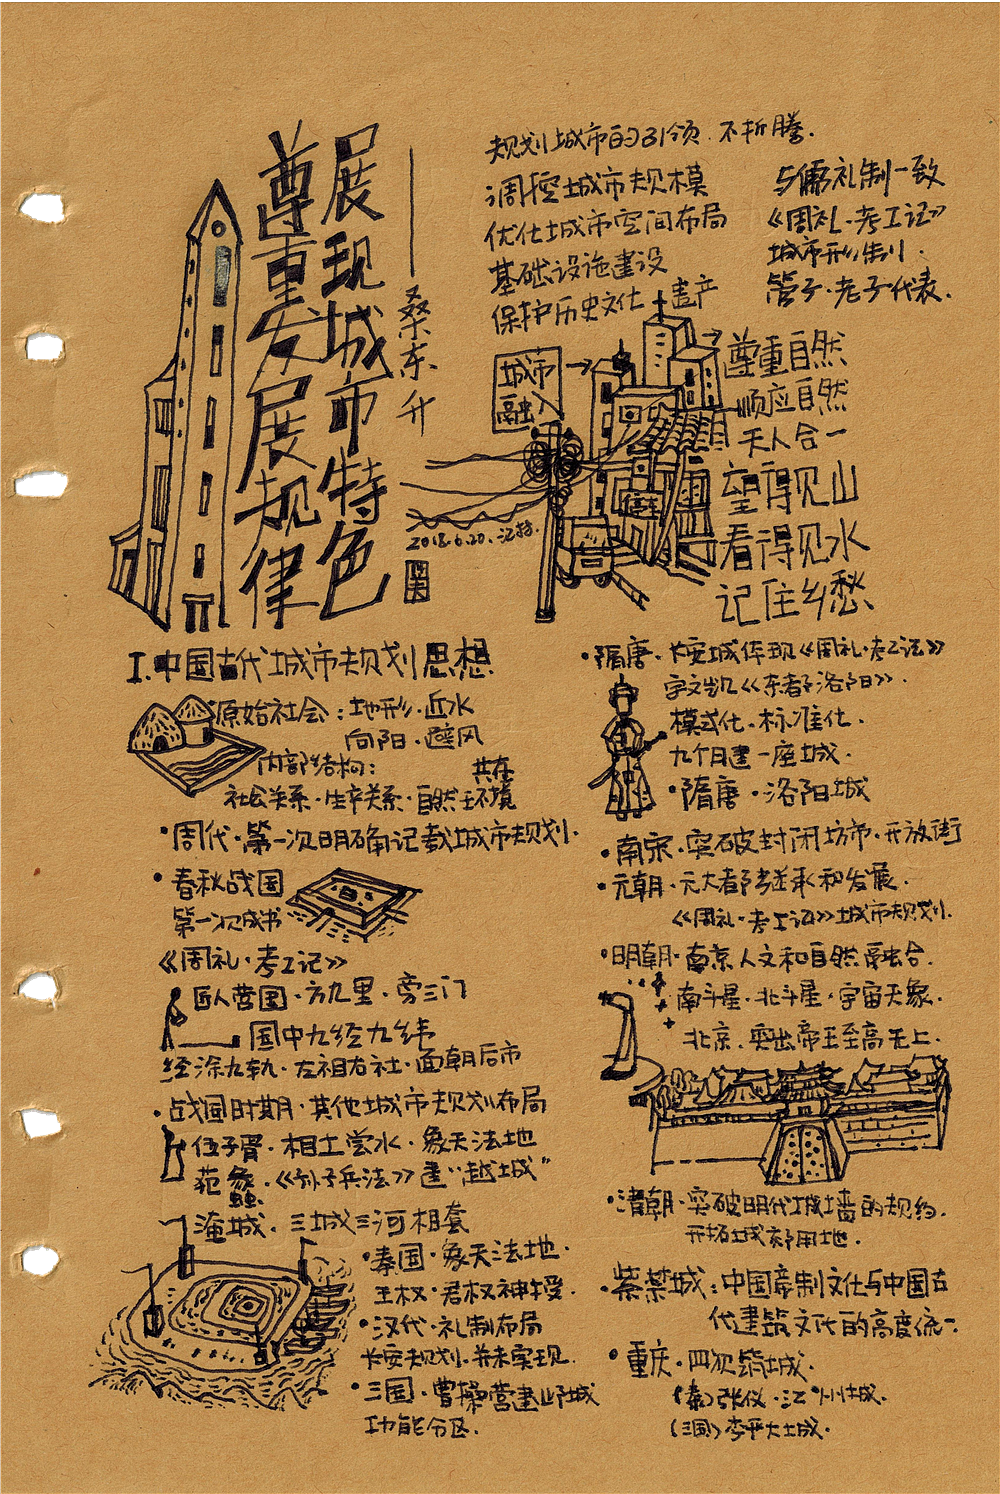 尊重发展规律
展现城市特色
——桑东升
规划城市的引领·不折腾.
调控城市规模
优化城市空间布局
基础设施建设
保护历史文化遗产
与儒礼制一致
《周礼·考工记》
城市形制.
管子·老子代表.
城市
融入
尊重自然
顺应自然
天人合一
望得见山
看得见水
记住乡愁
2018.6.20.江
I.中国古代城市规划思想
原始社会:地形·近水
向阳·避风
内部结构:
共在
社会关系·生辛关系·自然环境
·周代·第一次明确记载城市规划.
·春秋战国
第一次成书
《周礼·考工记》
匠人营国·方九里·旁三门
国中九经九纬
经涂九轨·左祖右社·面朝后市
·战国时期·其他城市规划布局
伍子胥·相土尝水·象天法地
范蠡.《孙子兵法》建“越城”
淹城.三城三河相套
·秦国·象天法地.
王权·君权神授.
·汉代·礼制布局
长安规划·并未实现.
·三国·曹操营建邺城
功能分区.
·隋唐·长安城体现《周礼·考工记》
宇文凯《东都洛阳》.
模式化·标准化.
九个月建一座城.
·隋唐·洛阳城
·南宋·突破封闭坊市·开放街
·元朝·元大都传承和发展.
《周礼·考工记》城市规划.
·明朝·南京人文和自然融合.
南斗星·北斗星·宇宙天象.
北京.突出帝王至高无上.
·清朝·突破明代城墙的规约.
开拓城郊用地.
·紫禁城:中国帝制文化与中国古
代建筑文化的高度统一.
·重庆·四次筑城.
(秦)张仪·江州城.
(三国)李严大城.